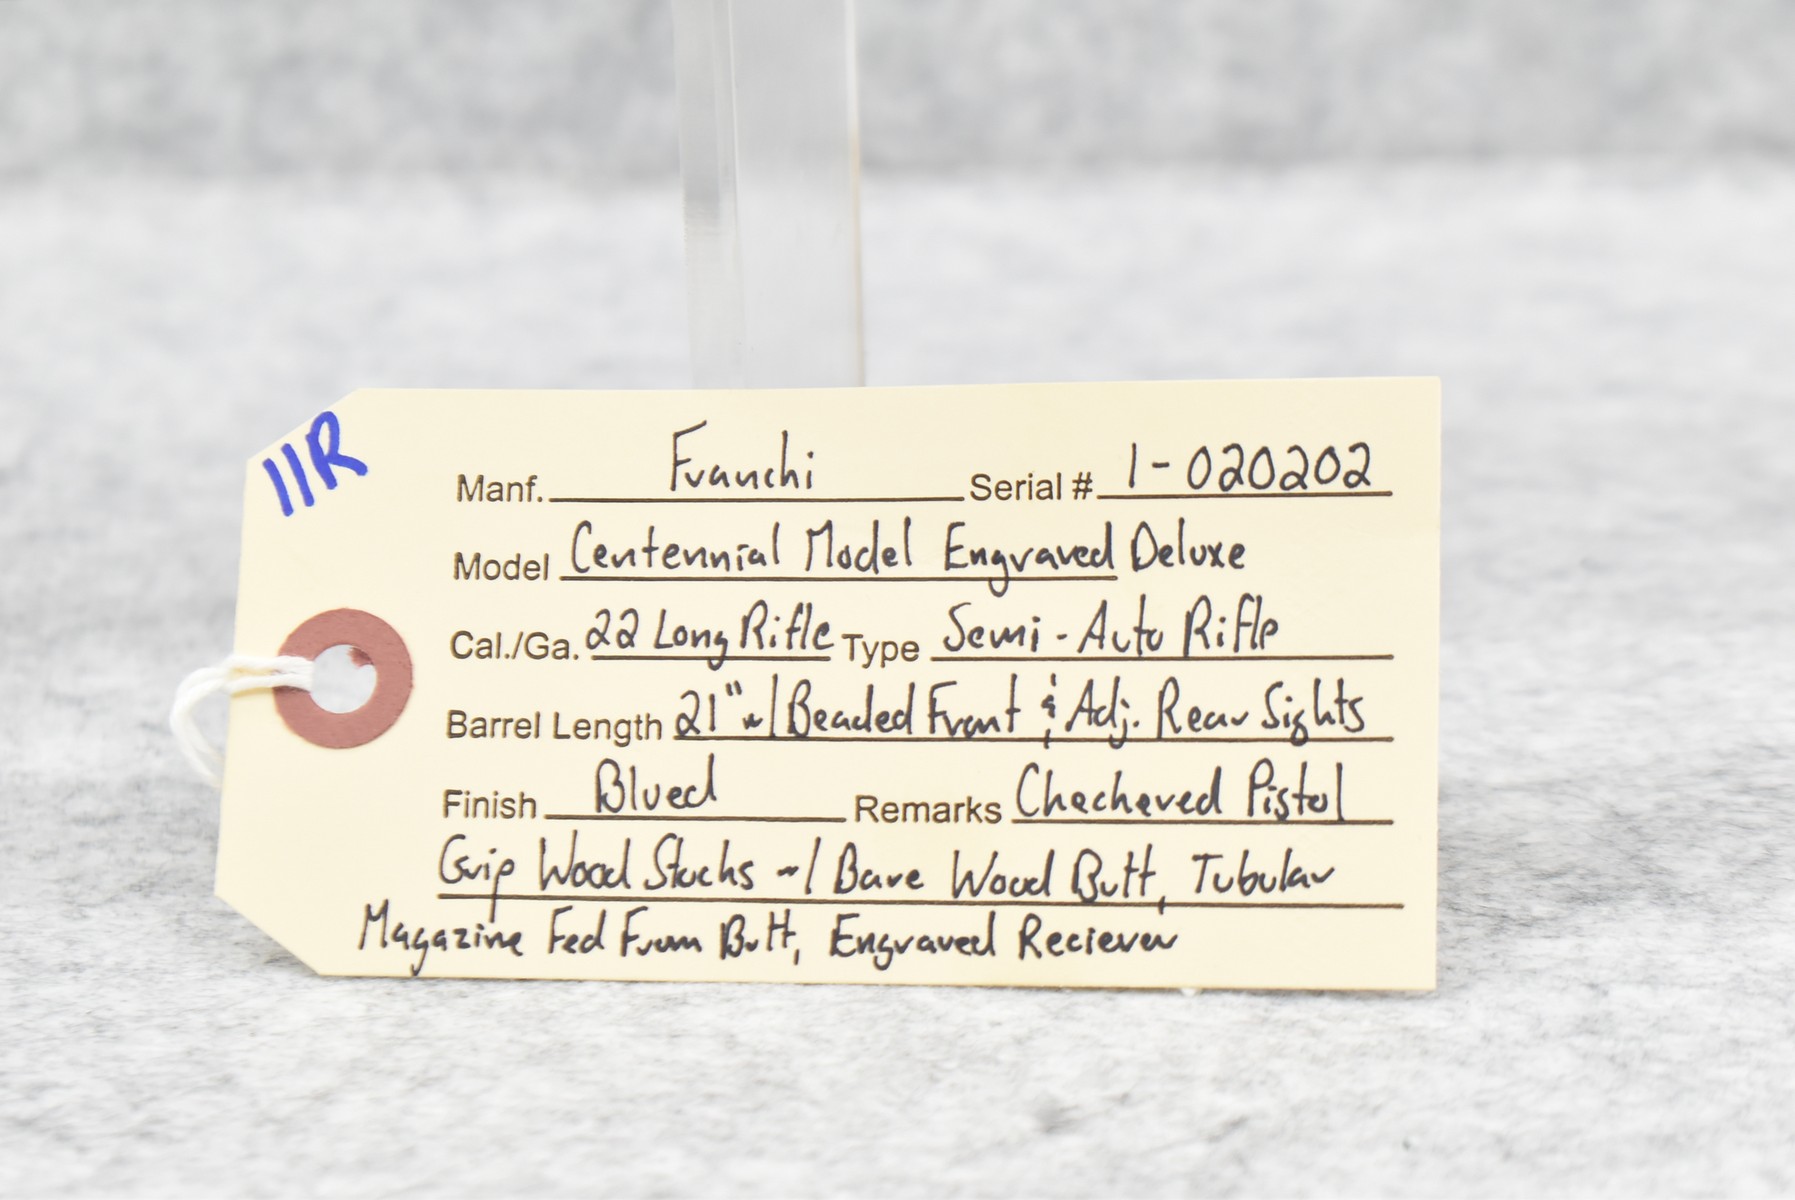 11R
Manf. Franchi Serial # 1-020202
Model Centennial Model Engraved Deluxe
Cal./Ga. 22 Long Rifle Type Semi-Auto Rifle
Barrel Length 21" w/ Beaded Front & Adj. Rear Sights
Finish Blued Remarks Checkered Pistol
Grip Wood Stocks w/ Bare Wood Butt, Tubular
Magazine Fed From Butt, Engraved Reciever